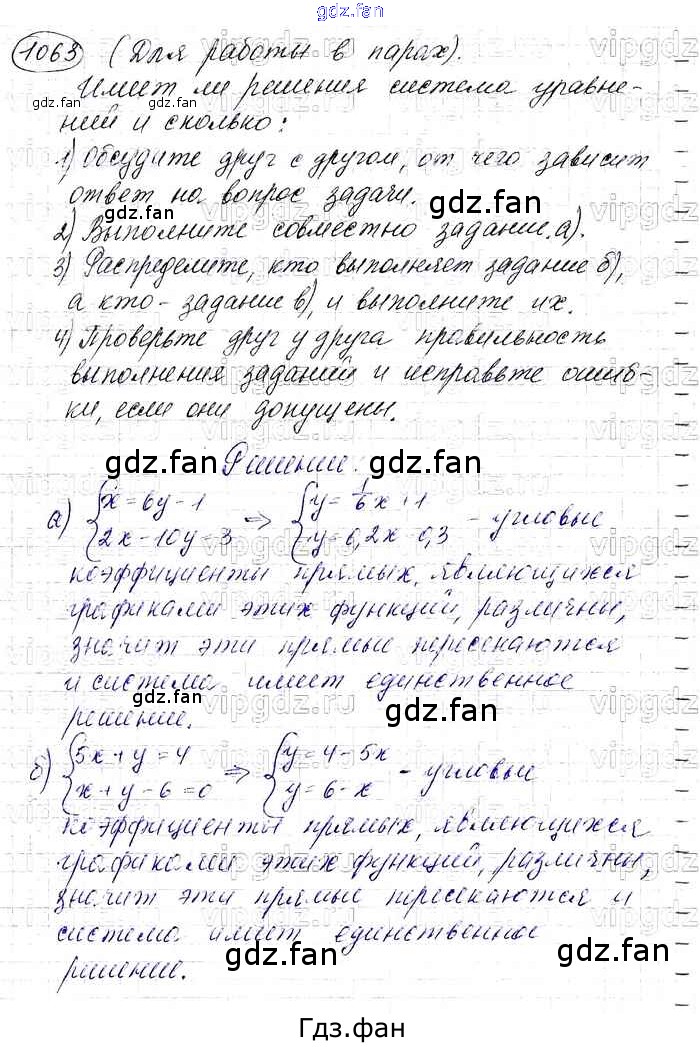 gdz.fan
1063 (Для работы в парах).
Имеет ли решения система уравне-
ний и сколько:
1) Обсудите друг с другом, от чего зависит
ответ на вопрос задачи.
2) Выполните совместно задание а).
3) Распределите, кто выполняет задание б),
а кто - задание в), и выполните их.
4) Проверьте друг у друга правильность
выполнения заданий и исправьте ошиб-
ки, если они допущены.
Решение:
а) {x = 6y - 1 ⇒ {y = 1/6 x + 1
{2x - 10y = 3 {y = 0,2x - 0,3 - угловые
коэффициенты прямых, являющихся
графиками этих функций, различны,
значит эти прямые пересекаются
и система имеет единственное
решение.
б) {5x + y = 4 ⇒ {y = 4 - 5x
{x + y - 6 = 0 {y = 6 - x - угловые
коэффициенты прямых, являющихся
графиками этих функций, различны,
значит эти прямые пересекаются и
система имеет единственное
решение.
Гдз.фан